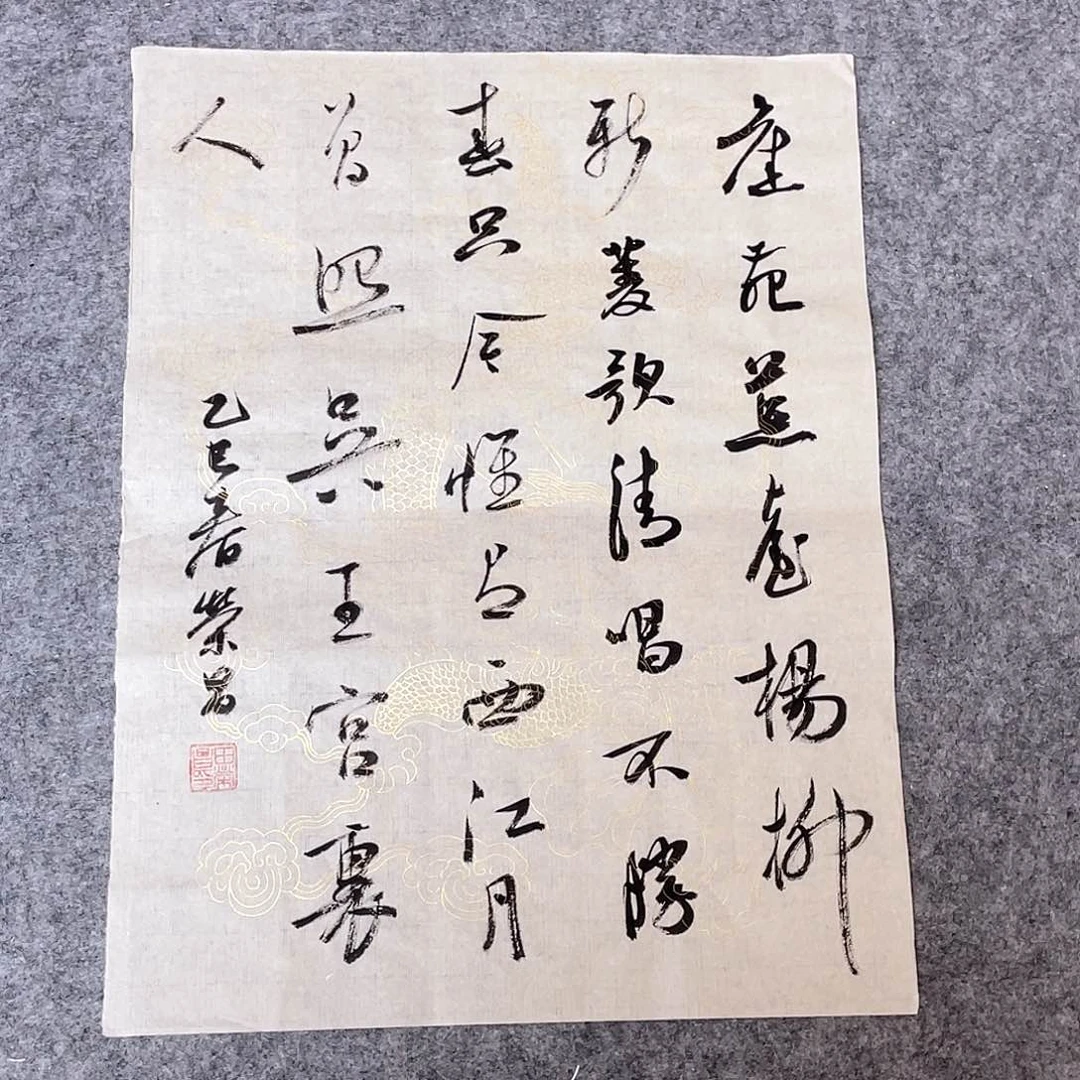 苑臺楊柳
新菱歌清唱不勝
春只今惟有西江月
曾照吳王宮裏
人
乙巳春榮昌